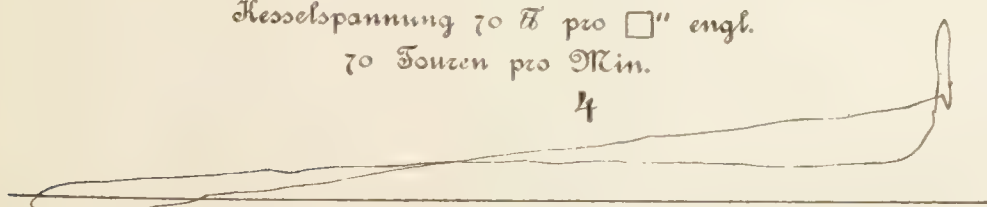 Kesselspannung 70 ℔ pro □" engl.
70 Touren pro Min.
4